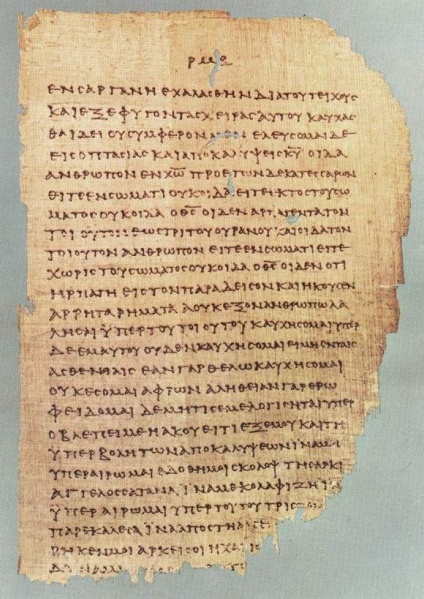 ΕΝϹΑΡΓΑΝΗΕΧΑΛΑϹΘΗΝΔΙΑΤΟΥΤΕΙΧΟΥϹ
ΚΑΙΕΞΕΦΥΓΟΝΤΑϹΧΕΙΡΑϹΑΥΤΟΥΚΑΥΧΑϹ
ΘΑΙΔΕΙΟΥϹΥΜΦΕΡΟΝΜΕΝΕΛΕΥϹΟΜΑΙΔΕ
ΕΙϹΟΠΤΑϹΙΑϹΚΑΙΑΠΟΚΑΛΥΨΕΙϹΚ̅Υ̅ΟΙΔΑ
ΑΝΘΡΩΠΟΝΕΝΧ̅Ω̅ΠΡΟΕΤΩΝΔΕΚΑΤΕϹϹΑΡΩΝ
ΕΙΤΕΕΝϹΩΜΑΤΙΟΥΚΟΙΔΑΕΙΤΕΕΚΤΟϹΤΟΥϹΩ
ΜΑΤΟϹΟΥΚΟΙΔΑΟΘ̅Ϲ̅ΟΙΔΕΝΑΡΠΑΓΕΝΤΑΤΟΝ
ΤΟΙΟΥΤΟΝΕΩϹΤΡΙΤΟΥΟΥΡΑΝΟΥΚΑΙΟΙΔΑΤΟΝ
ΤΟΙΟΥΤΟΝΑΝΘΡΩΠΟΝΕΙΤΕΕΝϹΩΜΑΤΙΕΙΤΕ
ΧΩΡΙϹΤΟΥϹΩΜΑΤΟϹΟΥΚΟΙΔΑΟΘ̅Ϲ̅ΟΙΔΕΝΟΤΙ
ΗΡΠΑΓΗΕΙϹΤΟΝΠΑΡΑΔΕΙϹΟΝΚΑΙΗΚΟΥϹΕΝ
ΑΡΡΗΤΑΡΗΜΑΤΑΑΟΥΚΕΞΟΝΑΝΘΡΩΠΩΛΑ
ΛΗϹΑΙΫΠΕΡΤΟΥΤΟΙΟΥΤΟΥΚΑΥΧΗϹΟΜΑΙΫΠΕΡ
ΔΕΕΜΑΥΤΟΥΟΥΔΕΝΚΑΥΧΗϹΟΜΑΙΕΙΜΗΕΝΤΑΙϹ
ΑϹΘΕΝΕΙΑΙϹΕΑΝΓΑΡΘΕΛΩΚΑΥΧΗϹΟΜΑΙ
ΟΥΚΕϹΟΜΑΙΑΦΡΩΝΑΛΗΘΕΙΑΝΓΑΡΕΡΩ
ΦΕΙΔΟΜΑΙΔΕΜΗΤΙϹΕΜΕΛΟΓΙϹΗΤΑΙΫΠΕΡ
ΟΒΛΕΠΕΙΜΕΗΑΚΟΥΕΙΤΙΕΞΕΜΟΥΚΑΙΤΗ
ΫΠΕΡΒΟΛΗΤΩΝΑΠΟΚΑΛΥΨΕΩΝΪΝΑΜΗ
ΥΠΕΡΑΙΡΩΜΑΙΕΔΟΘΗΜΟΙϹΚΟΛΟΨΤΗϹΑΡΚΙ
ΑΓΓΕΛΟϹϹΑΤΑΝΑΪΝΑΜΕΚΟΛΑΦΙΖΗΪΝ
ΫΠΕΡΑΙΡΩΜΑΙΫΠΕΡΤΟΥΤΟΥΤΡΙϹ
ΠΑΡΕΚΑΛΕϹΑΪΝΑΑΠΟϹΤΗ
ΡΗΚΕΝΜΟΙΑΡΚΕΙϹΟΙΗΧΑΡΙϹ